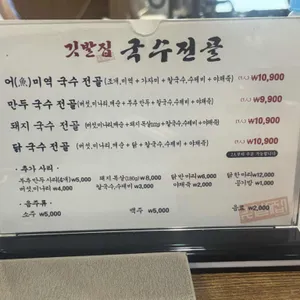 깃발집 국수전골
어(魚)미역 국수 전골 (조개,미역 + 가자미 + 칼국수,수제비 + 야채죽) (1人) ₩10,900
만두 국수 전골 (버섯,미나리,배순 + 부추 만두 + 칼국수,수제비 + 야채죽) (1人) ₩9,900
돼지 국수 전골 (버섯,미나리,배순 + 돼지 목살 + 칼국수,수제비 + 야채죽) (1人) ₩10,900
닭 국수 전골 (버섯,미나리,배순 + 닭 + 칼국수,수제비 + 야채죽) (1人) ₩10,900
· 추가 사리 ·
부추만두사리(4개) ₩5,000 돼지 목살(180g) ₩8,000 닭 반마리 ₩6,000 닭 한마리 ₩12,000
버섯,미나리 ₩4,000 칼국수,수제비 ₩3,000 야채죽 ₩2,000 공기밥 ₩1,000
· 음주류 ·
소주 ₩5,000 맥주 ₩5,000 음료 ₩2,000